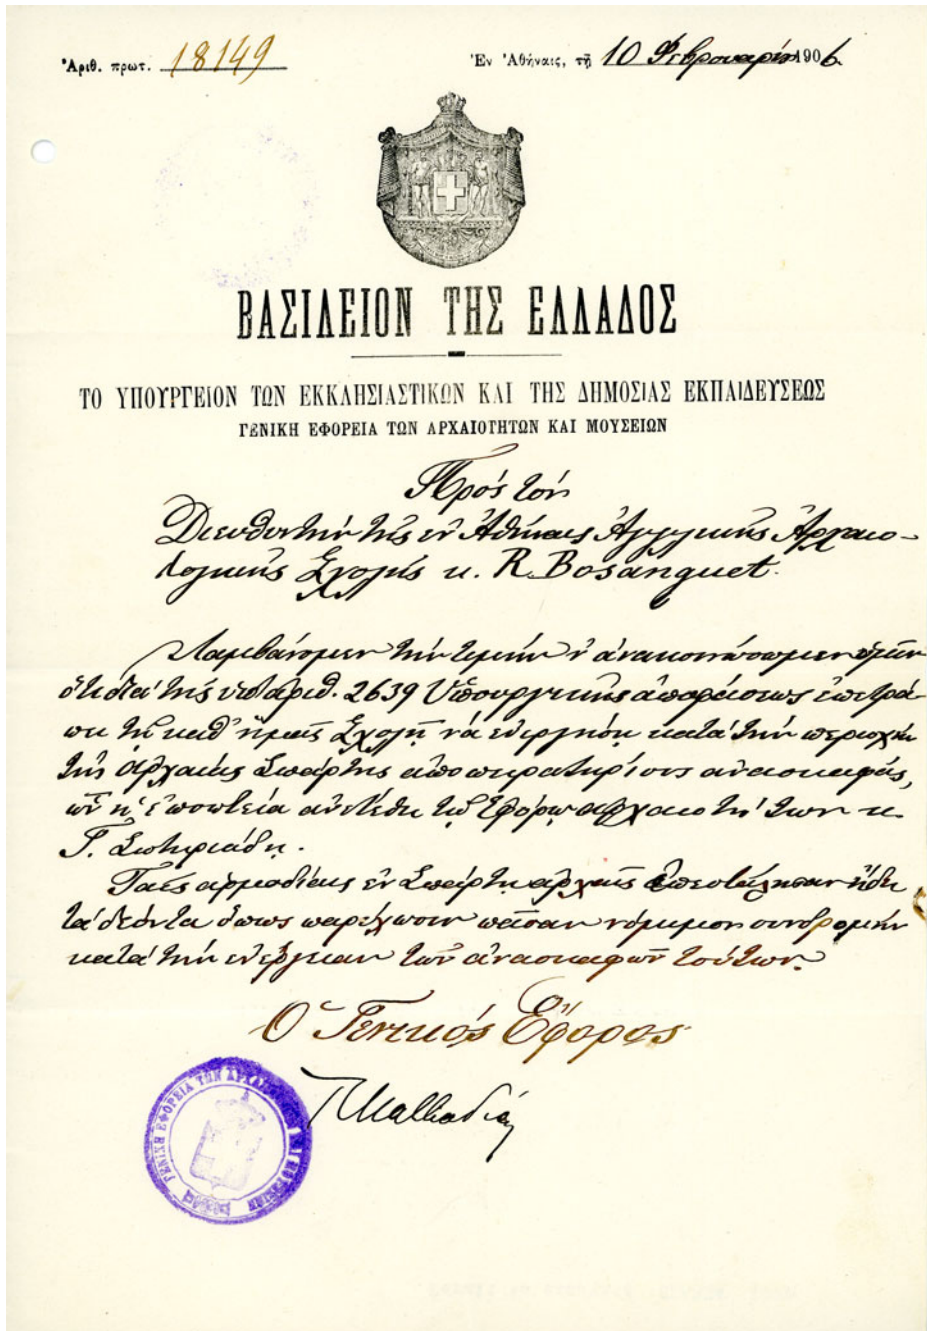 Ἀριθ. πρωτ. 18149
Ἐν Ἀθήναις, τῇ 10 Φεβρουαρίου 1906
ΒΑΣΙΛΕΙΟΝ ΤΗΣ ΕΛΛΑΔΟΣ
ΤΟ ΥΠΟΥΡΓΕΙΟΝ ΤΩΝ ΕΚΚΛΗΣΙΑΣΤΙΚΩΝ ΚΑΙ ΤΗΣ ΔΗΜΟΣΙΑΣ ΕΚΠΑΙΔΕΥΣΕΩΣ
ΓΕΝΙΚΗ ΕΦΟΡΕΙΑ ΤΩΝ ΑΡΧΑΙΟΤΗΤΩΝ ΚΑΙ ΜΟΥΣΕΙΩΝ
Πρός τόν
Διευθυντήν τῆς ἐν Ἀθήναις Ἀγγλικῆς Ἀρχαιο-
λογικῆς Σχολῆς κ. R. Bosanquet.
Λαμβάνομεν τήν τιμήν ν' ἀνακοινώσωμεν ὑμῖν
ὅτι διά τῆς ὑπ' ἀριθ. 2639 Ὑπουργικῆς ἀποφάσεως ἐπετρά-
πη τῇ καθ' ὑμᾶς Σχολῇ νά ἐνεργήσῃ κατά τήν περιοχήν
τῆς ἀρχαίας Σπάρτης ἀποπειρατηρίους ἀνασκαφάς,
ὧν ἡ ἐποπτεία ἀνετέθη τῷ Ἐφόρῳ ἀρχαιοτήτων κ.
Γ. Σωτηριάδῃ.
Ταῖς ἁρμοδίαις ἐν Σπάρτῃ ἀρχαῖς ἀπεστάλησαν ἤδη
τά δέοντα ὅπως παρέχωσιν πᾶσαν νόμιμον συνδρομήν
κατά τήν ἐνέργειαν τῶν ἀνασκαφῶν τούτων.
Ὁ Γενικός Ἔφορος
Π Καββαδίας
ΓΕΝΙΚΗ ΕΦΟΡΕΙΑ ΤΩΝ ΑΡΧΑΙΟΤΗΤΩΝ